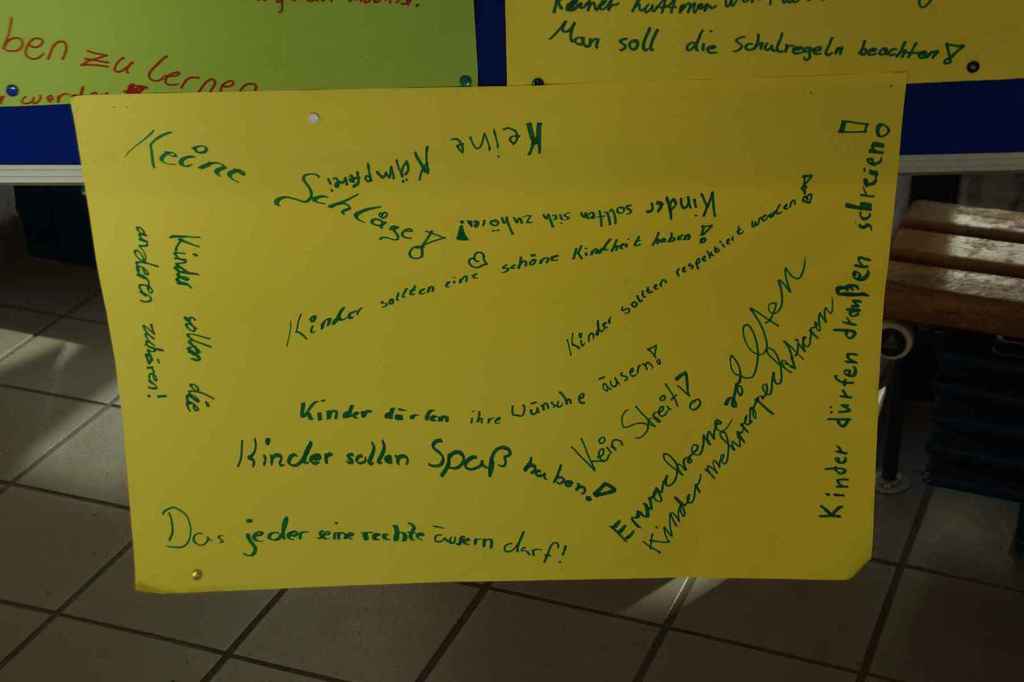 ben zu lernen
Man soll die Schulregeln beachten!
Keine
Schläge!
Keine
Kämpferei
Kinder sollten sich zuhören!
Kinder sollten eine schöne Kindheit haben!
Kinder sollten respektiert werden!
Kinder sollen die
anderen zuhören!
Kinder dürfen ihre Wünsche äusern!
Kein Streit!
Kinder sollen Spaß haben!
Erwachsene sollten
Kinder mehr respecktieren
Kinder dürfen draußen schreien!
Das jeder seine rechte äusern darf!